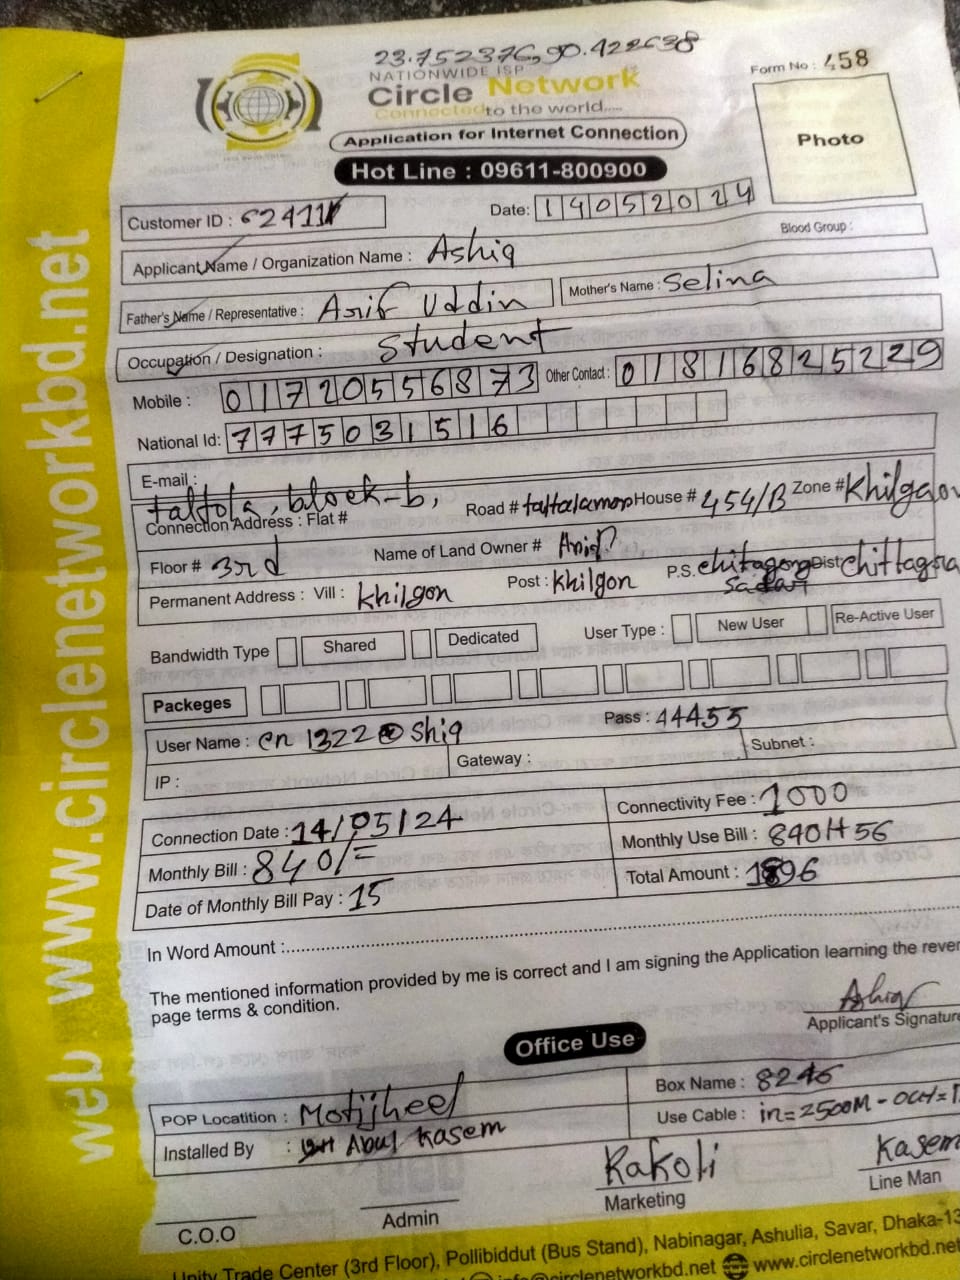 23.752376,90.422638
NATIONWIDE ISP
Circle Network
Connected to the world.....
Form No : 458
Photo
Application for Internet Connection
Hot Line : 09611-800900
Customer ID : 62411
Date: 14052024
Blood Group :
Applicant Name / Organization Name : Ashiq
Father's Name / Representative : Arif Uddin Mother's Name : Selina
Occupation / Designation : Student
Mobile : 01720556873 Other Contact : 01816825229
National Id: 7775031516
E-mail :
taltola, block-b,
Connection Address : Flat # Road # taltalamor House # 454/B Zone # Khilgaon
Floor # 3rd Name of Land Owner # Arif
Permanent Address : Vill : Khilgon Post : Khilgon P.S. chitagong sadar Dist chittagong
Bandwidth Type Shared Dedicated User Type : New User Re-Active User
Packeges
User Name : cn 1322@shiq Pass : 44455
IP : Gateway : Subnet :
Connection Date : 14/05/24 Connectivity Fee : 1000
Monthly Bill : 840/= Monthly Use Bill : 840+56
Date of Monthly Bill Pay : 15 Total Amount : 1896
In Word Amount :
The mentioned information provided by me is correct and I am signing the Application learning the rever
page terms & condition.
Ashiq
Applicant's Signature
Office Use
POP Locatition : Motijheel Box Name : 8246
Installed By : Abul Kasem Use Cable : in=2500M - out=
Rakoli
Kasem
C.O.O Admin Marketing Line Man
Unity Trade Center (3rd Floor), Pollibiddut (Bus Stand), Nabinagar, Ashulia, Savar, Dhaka-13
info@circlenetworkbd.net www.circlenetworkbd.net
web www.circlenetworkbd.net